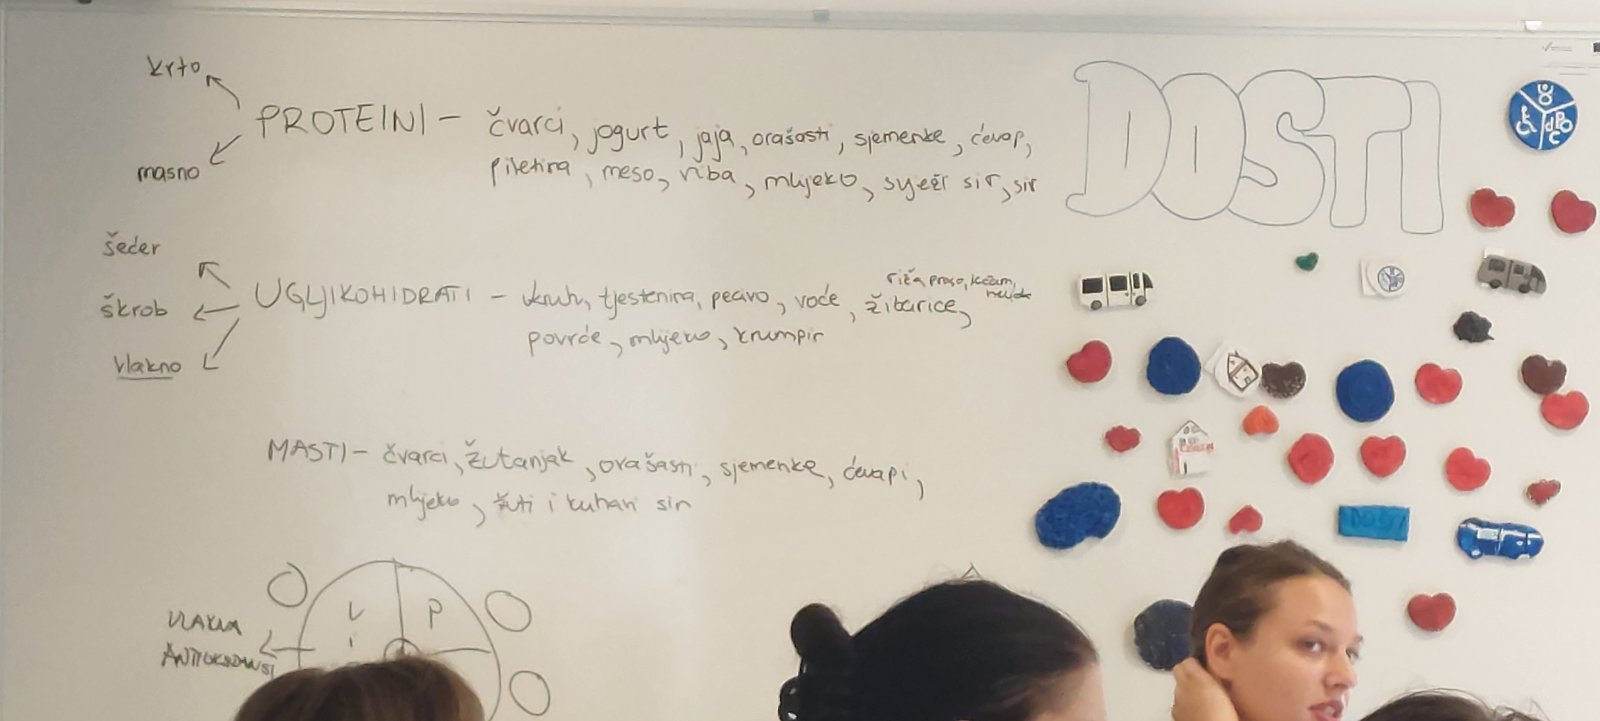 krto
PROTEINI - čvarci, jogurt, jaja, orašasti, sjemenke, ćevap,
masno
piletina, meso, riba, mlijeko, svježi sir, sir
DOSTI
šećer
škrob
vlakno
UGLJIKOHIDRATI - kruh, tjestenina, pecivo, voće, žitarice,
riža, proso,
povrće, mlijeko, krumpir
MASTI - čvarci, žutanjak, orašasti, sjemenke, ćevapi,
mlijeko, žuti i kuhani sir
VLAKNA
P
DOSTI